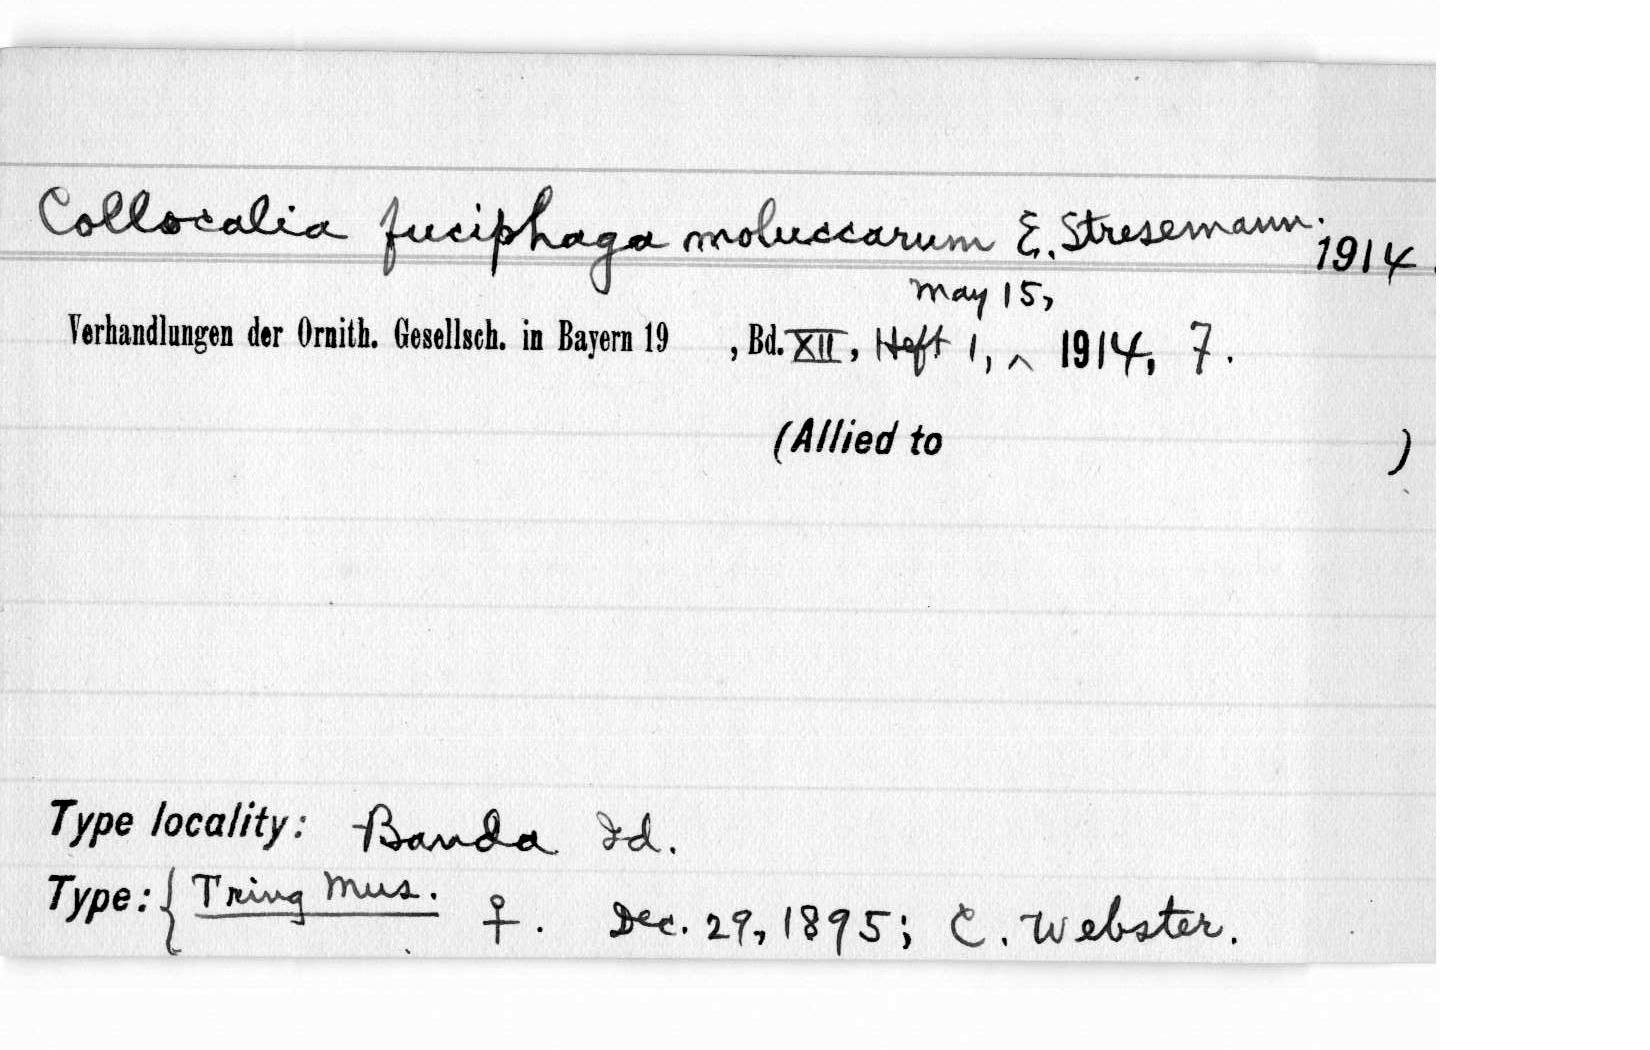 Collocalia fuciphaga moluccarum E. Stresemann. 1914.
may 15,
Verhandlungen der Ornith. Gesellsch. in Bayern 19 , Bd. XII, Heft 1, ^ 1914, 7.
(Allied to )
Type locality: Banda Id.
Type: { Tring Mus. ♀. Dec. 29, 1895; C. Webster.